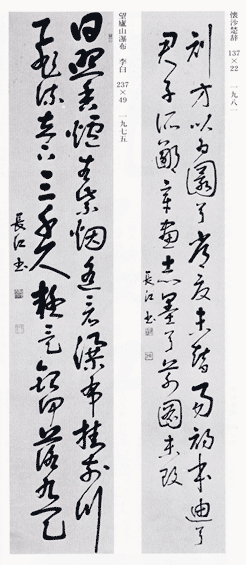 懷沙楚辭 137×22 一九八一
刓方以为圜兮常度未替易初本迪兮
君子所鄙章畫志墨兮前圖未改
長江书
望廬山瀑布 李白 237×49 一九七五
日照香爐生紫烟遥看瀑布挂前川
飛流直下三千尺疑是銀河落九天
長江书